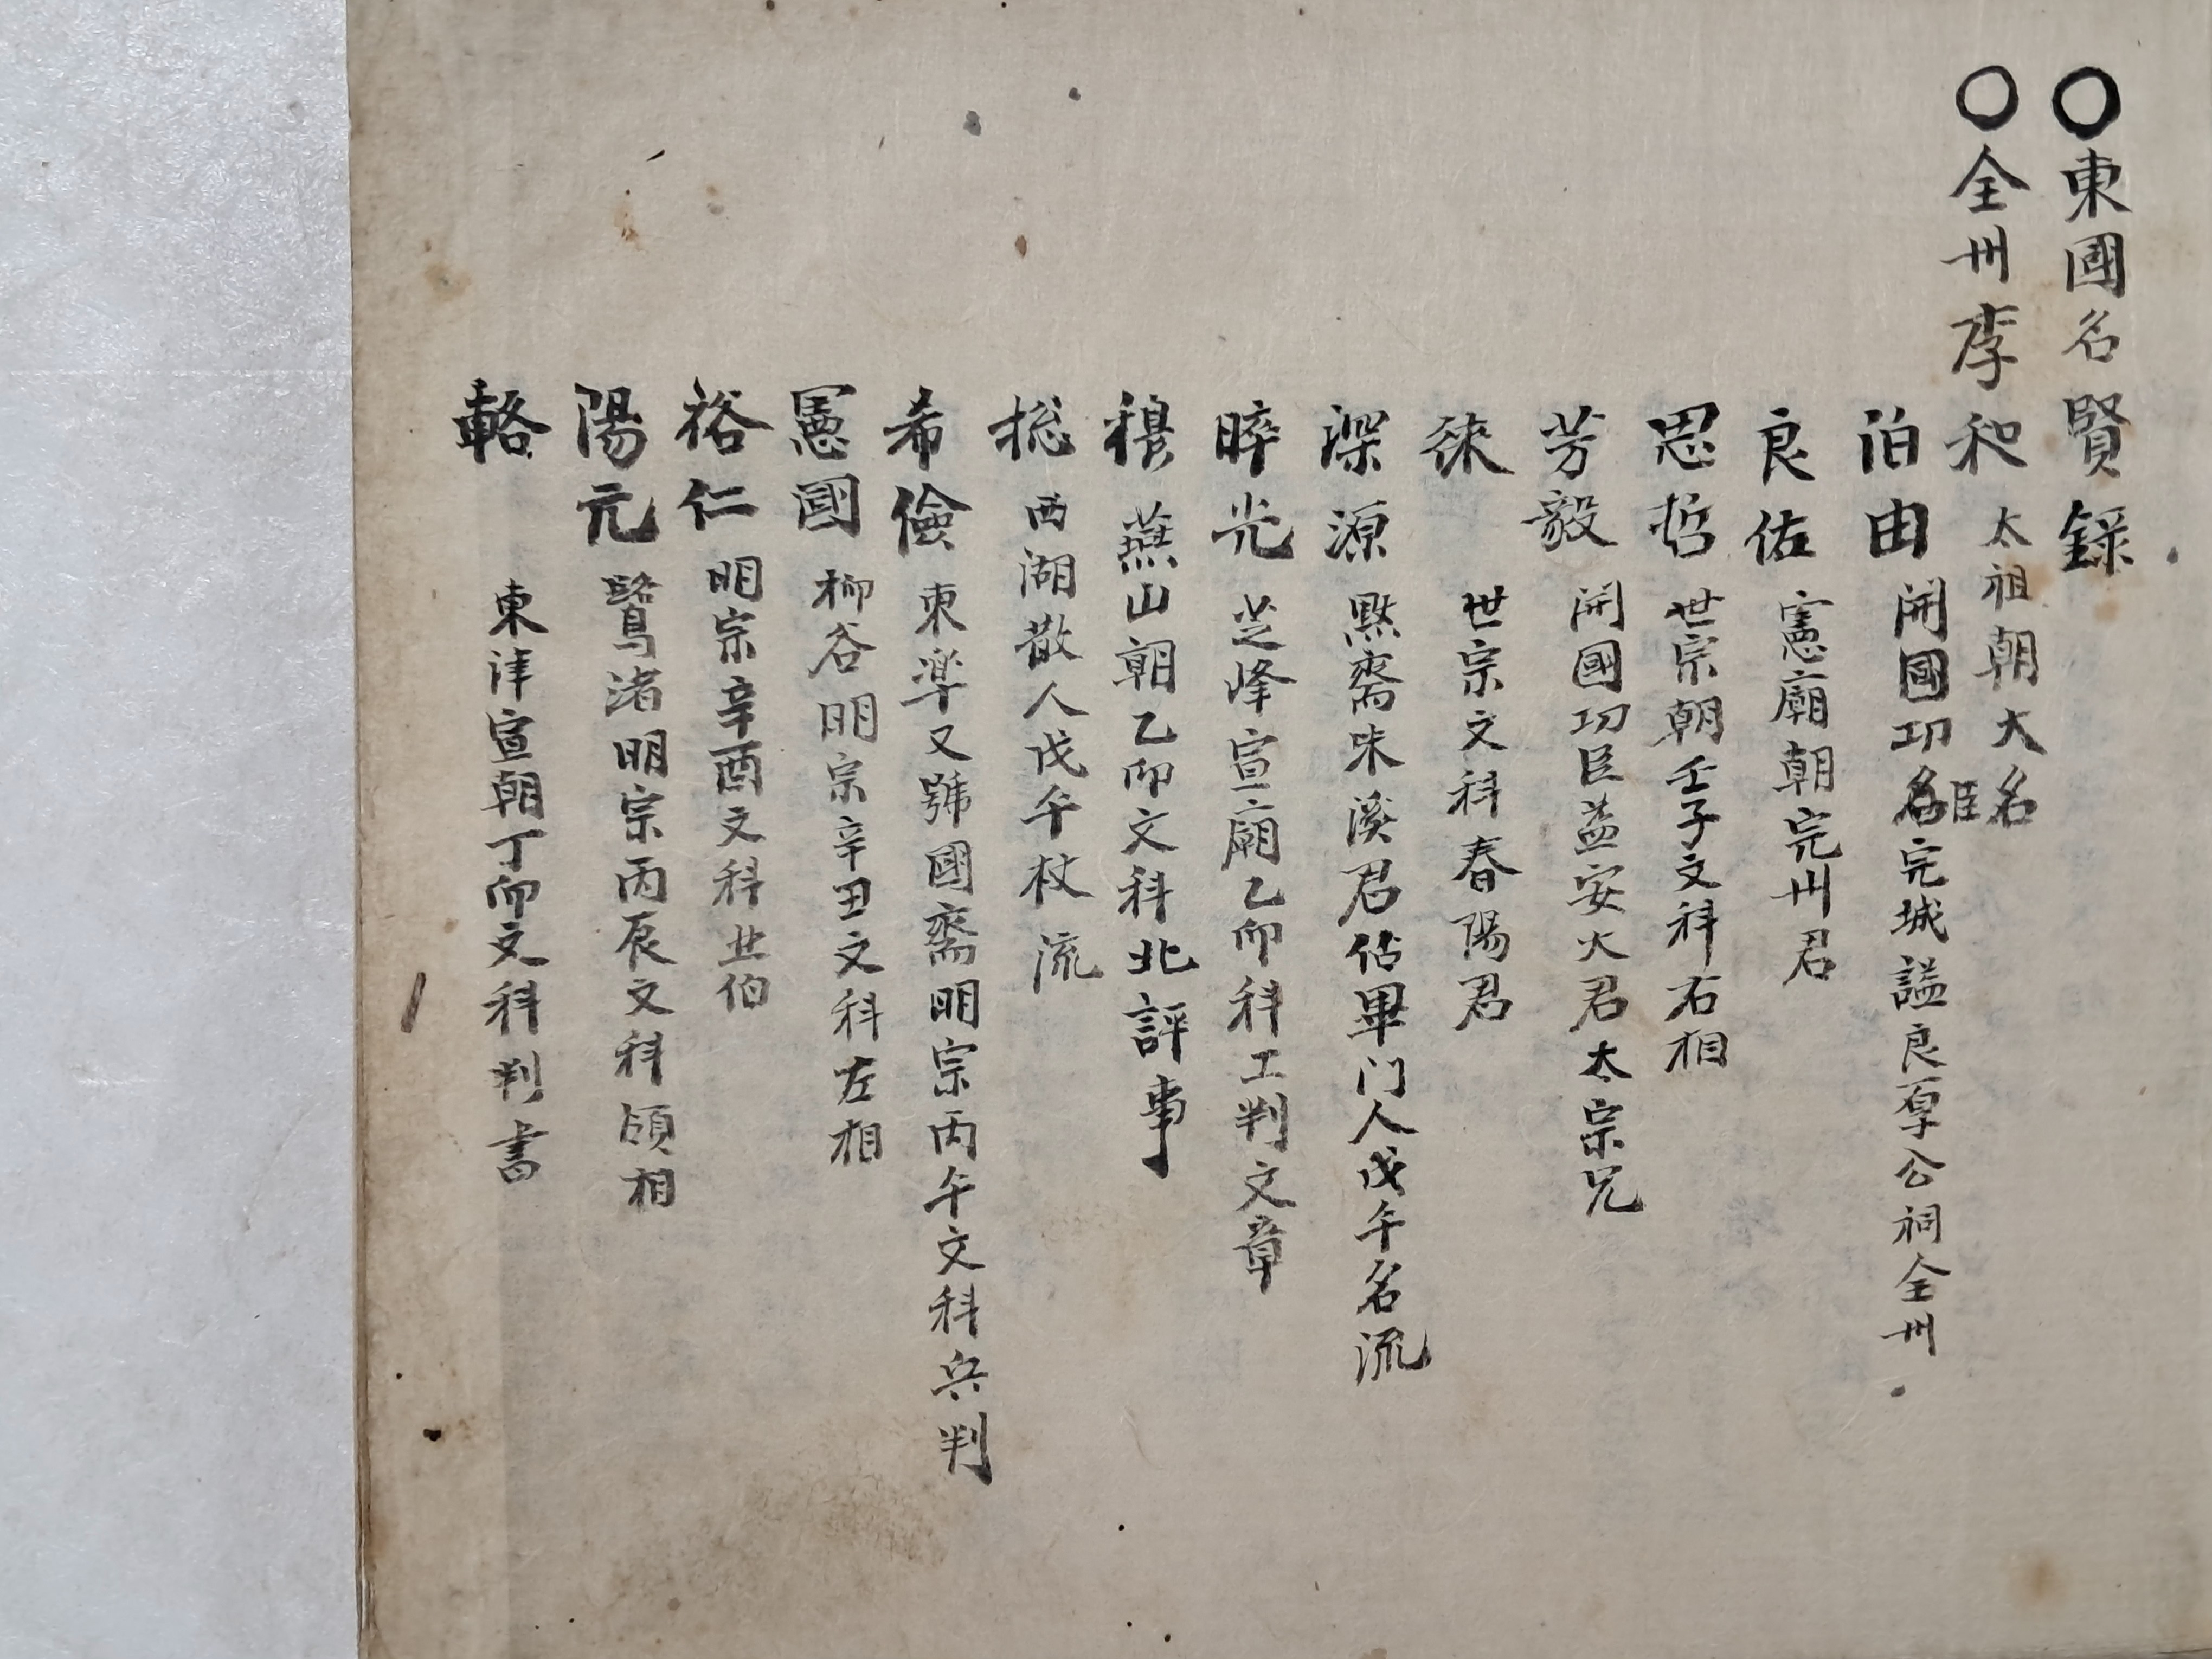 ○東國名賢錄
○全州李和 太祖朝大名
伯由 開國功臣名完城謚良厚公祠全州
良佑 憲廟朝完州君
思哲 世宗朝壬子文科右相
芳毅 開國功臣益安大君太宗兄
徠 世宗文科春陽君
深源 默齋朱溪君佔畢门人戊午名流
晬光 芝峰宣廟乙卯科工判文章
穆 燕山朝乙卯文科北評事
摠 西湖散人戊午杖流
希儉 東皐又號國齋明宗丙午文科兵判
憲國 柳谷明宗辛丑文科左相
裕仁 明宗辛酉文科北伯
陽元 鷺渚明宗丙辰文科領相
輅 東津宣朝丁卯文科判書